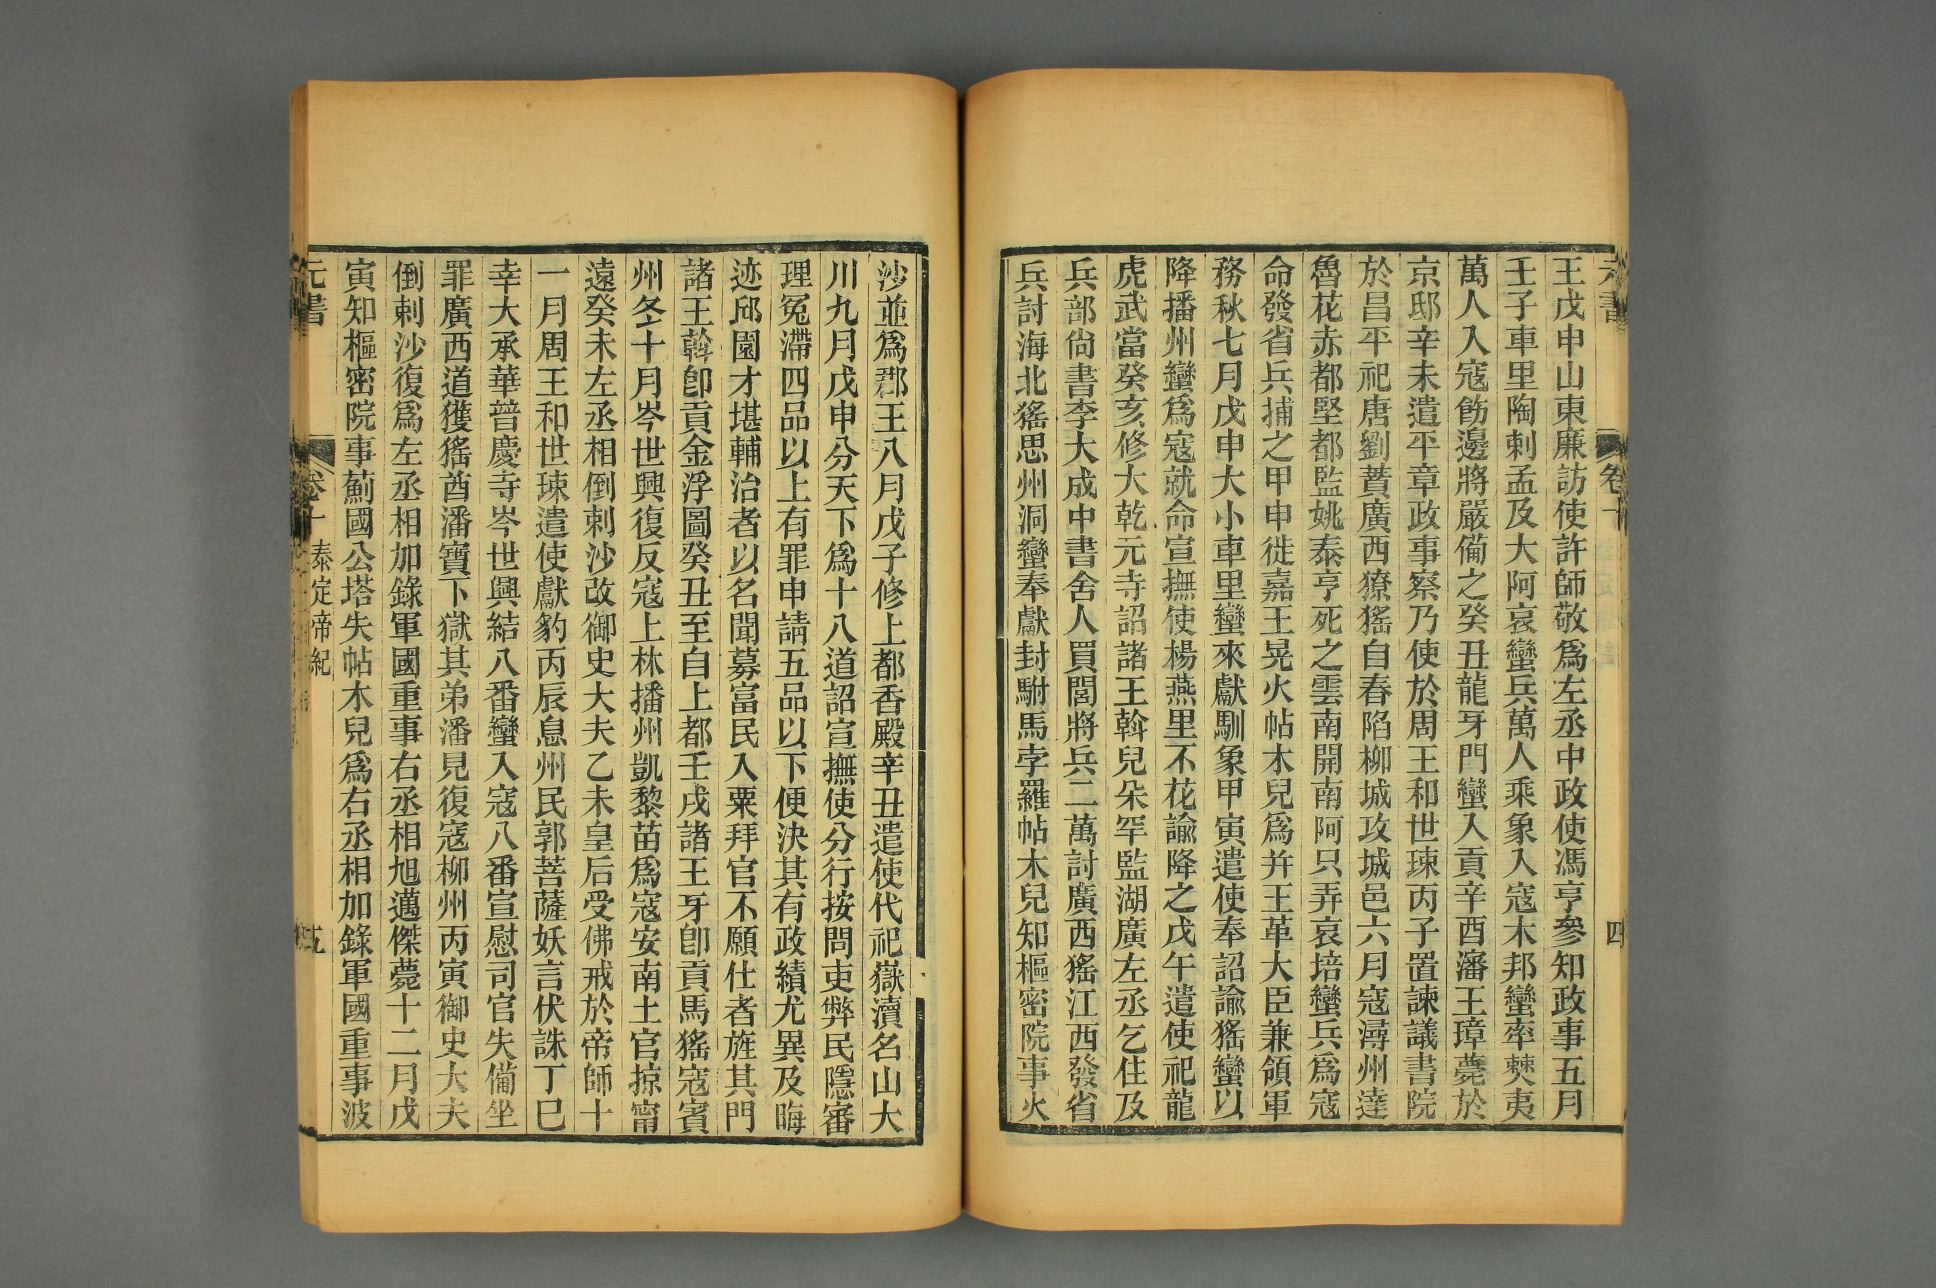 元書
卷十
四
王戊申山東廉訪使許師敬爲左丞中政使馮亨參知政事五月
壬子車里陶剌孟及大阿哀蠻兵萬人乘象入寇木邦蠻率僰夷
萬人入寇飭邊將嚴備之癸丑龍牙門蠻入貢辛酉瀋王璋薨於
京邸辛未遣平章政事察乃使於周王和世㻋丙子置諫議書院
於昌平祀唐劉蕡廣西獠猺自春陷柳城攻城邑六月寇潯州達
魯花赤都堅都監姚泰亨死之雲南開南阿只弄哀培蠻兵爲寇
命發省兵捕之甲申徙嘉王晃火帖木兒爲幷王革大臣兼領軍
務秋七月戊申大小車里蠻來獻馴象甲寅遣使奉詔諭猺蠻以
降播州蠻爲寇就命宣撫使楊燕里不花諭降之戊午遣使祀龍
虎武當癸亥修大乾元寺詔諸王斡兒朵罕監湖廣左丞乞住及
兵部尙書李大成中書舍人買閭將兵二萬討廣西猺江西發省
兵討海北猺思州洞蠻奉獻封駙馬孛羅帖木兒知樞密院事火
沙並爲郡王八月戊子修上都香殿辛丑遣使代祀嶽瀆名山大
川九月戊申分天下爲十八道詔宣撫使分行按問吏弊民隱審
理冤滯四品以上有罪申請五品以下便決其有政績尤異及晦
迹邱園才堪輔治者以名聞募富民入粟拜官不願仕者旌其門
諸王斡卽貢金浮圖癸丑至自上都壬戌諸王牙卽貢馬猺寇賓
州冬十月岑世興復反寇上林播州凱黎苗爲寇安南土官掠甯
遠癸未左丞相倒剌沙改御史大夫乙未皇后受佛戒於帝師十
一月周王和世㻋遣使獻豹丙辰息州民郭菩薩妖言伏誅丁巳
幸大承華普慶寺岑世興結八番蠻入寇八番宣慰司官失備坐
罪廣西道獲猺酋潘寶下獄其弟潘見復寇柳州丙寅御史大夫
倒剌沙復爲左丞相加錄軍國重事右丞相旭邁傑薨十二月戊
寅知樞密院事薊國公塔失帖木兒爲右丞相加錄軍國重事波
元書
卷十 泰定帝紀
五